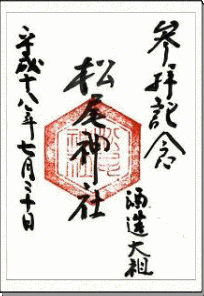 参拝記念
酒造大祖
松尾神社
平成十八年七月三十日